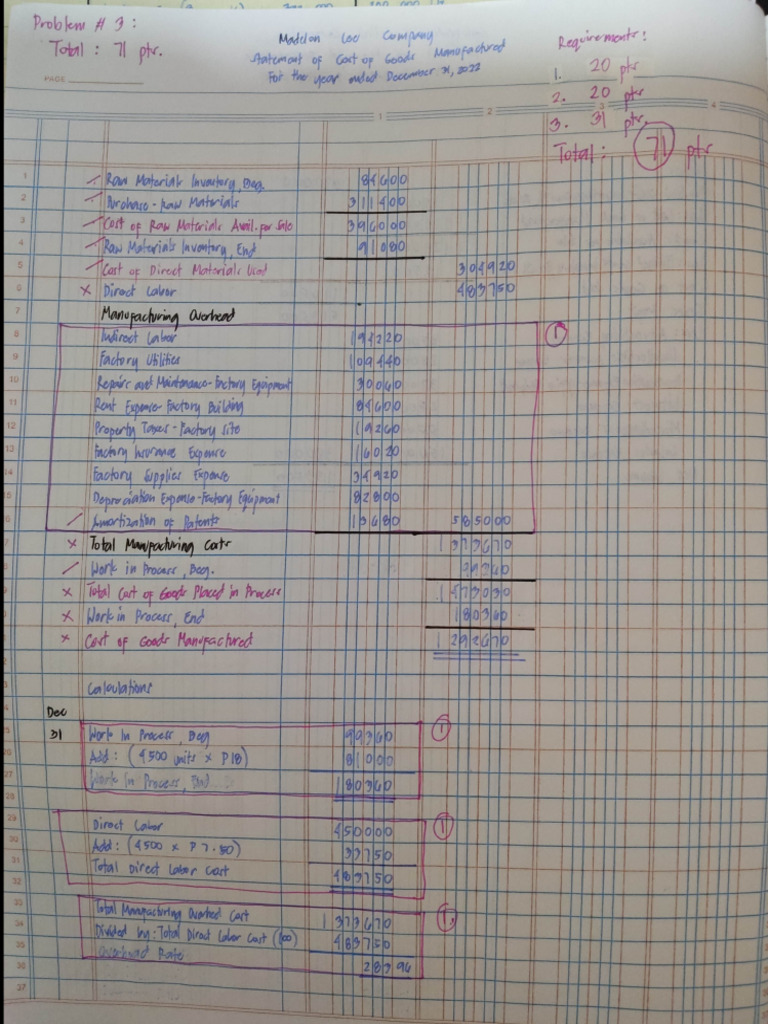 Problem # 3 :
Total : 71 ptr.
Madelon Loe Company
Statement of Cost of Goods Manufactured
For the year ended December 31, 2022
Requirements:
1. 20 ptr
2. 20 ptr
3. 31 ptr.
Total: 71 ptr
PAGE
1 2 3 4
1 Raw Materials Inventory, Beg. 84600
2 Purchase - Raw Materials 311400
3 Cost of Raw Materials Avail. for Sale 396000
4 Raw Materials Inventory, End 91080
5 Cost of Direct Materials Used 304920
6 x Direct Labor 483750
7 Manufacturing Overhead
8 Indirect Labor 194220 1
9 Factory Utilities 109440
10 Repairs and Maintenance - Factory Equipment 30060
11 Rent Expense - Factory Building 84600
12 Property Taxes - Factory Site 19260
13 Factory Insurance Expense 16020
14 Factory Supplies Expense 34920
15 Depreciation Expense - Factory Equipment 82800
Amortization of Patents 13680 585000
x Total Manufacturing Costs 1373670
Work in Process, Beg.
x Total Cost of Goods Placed in Process 1473030
x Work in Process, End 180360
x Cost of Goods Manufactured 1292670
Calculations
Dec
31 Work In Process, Beg 1
Add: (4500 units x P18) 81000
Work In Process, End 180360
29 Direct Labor 450000 1
Add: (4500 x P 7.50) 33750
31 Total Direct Labor Cost 483750
Total Manufacturing Overhead Cost 1373670 1.
34 Divided by: Total Direct Labor Cost (100) 483750
Overhead Rate 28396
36
37